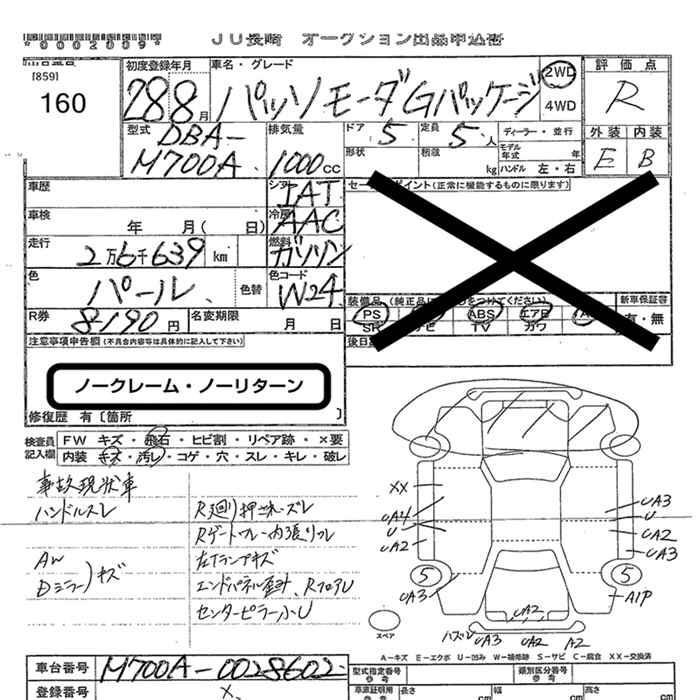 *0002009*
JU長崎 オークション出品申込書
[859]
160
初度登録年月
28 8月
車名・グレード
パッソ モーダGパッケージ
2WD
4WD
評価点
R
型式
DBA-
M700A
排気量
1000cc
ドア
5
定員
5人
形状
積載
kg
ディーラー・並行
モデル年式 年
ハンドル 左・右
外装 内装
E B
車歴
シフト
IAT
車検 年 月( 日)
冷房
AAC
走行
2万6千639 km
燃料
ガソリン
色
パール
色替
色コード
W24
R券
8190円
名変期限 月 日
装備品
PS
ABS
エアB
TV
ガワ
新車保証書
有・無
注意事項申告欄(不具合内容等は具体的に記入して下さい)
ノークレーム・ノーリターン
修復歴 有〔箇所 〕
検査員記入欄
FW キズ・飛石・ヒビ割・リペア跡・×要
内装 キズ・汚レ・コゲ・穴・スレ・キレ・破レ
事故現状車
ハンドルスレ
AW
Dミラー)キズ
R廻り押されズレ
Rゲートフレー内張りフレ
左Tランプキズ
エンドパネル歪計、RフロアU
センターピラー小U
XX
UA4
U
UA2
UA3
U
UA2
UA3
5
5
UA3
A1P
UA2
スペア
ハズレ
UA3 UA2 A2
A-キズ E-エクボ U-凹み W-補修跡 S-サビ C-腐食 XX-交換済
車台番号
M700A-0028602
登録番号
型式指定番号
参考
類別区分番号
参考
車庫証明用
参考
長さ cm
幅 cm
高さ